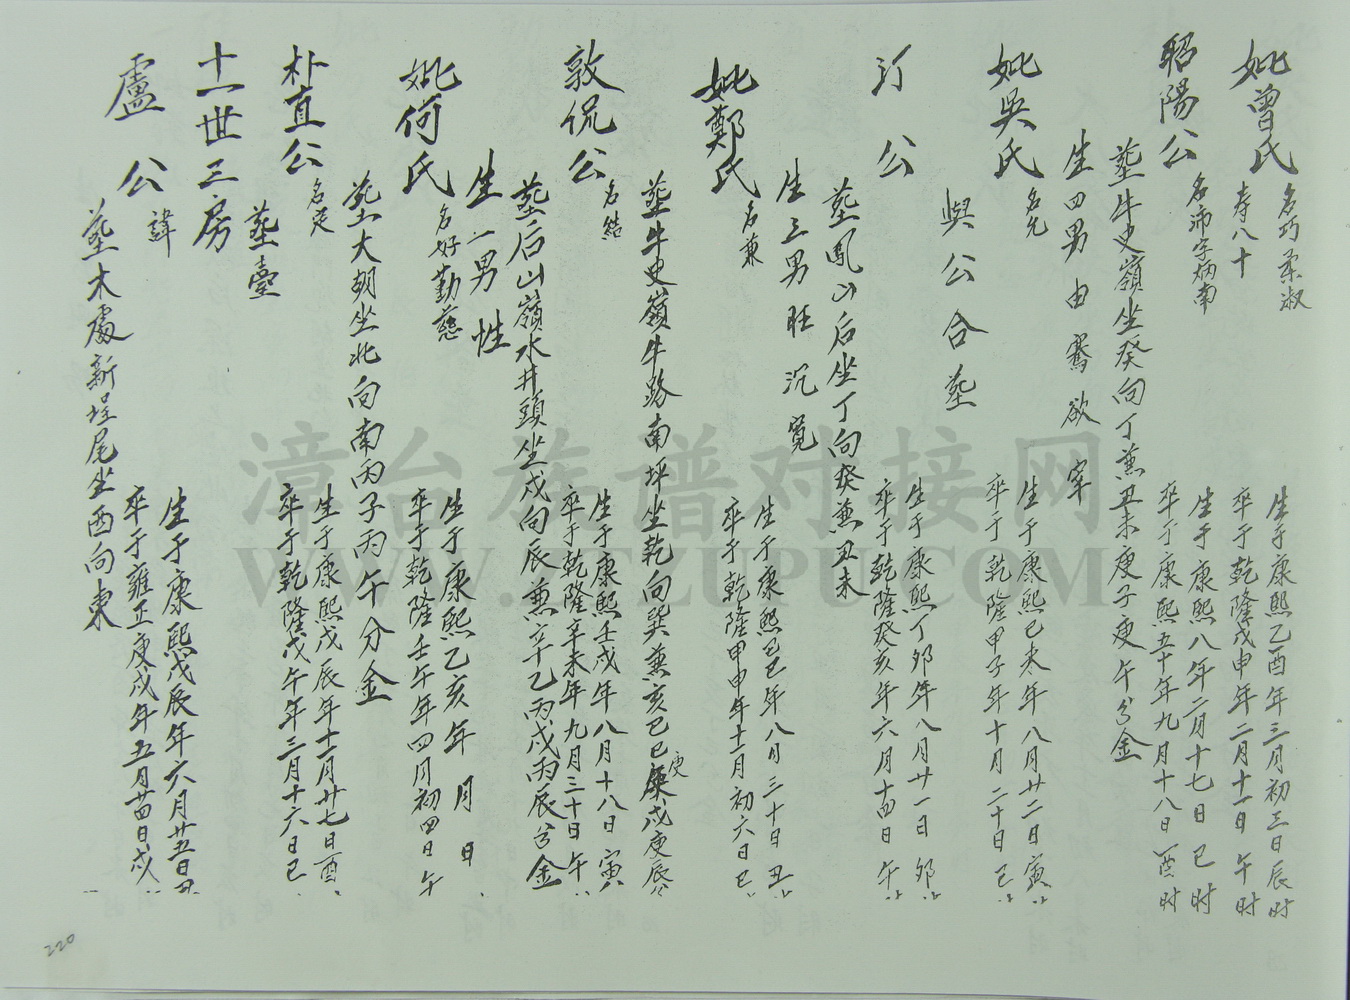 妣曾氏
名巧柔淑
壽八十
生于康熙乙酉年三月初三日辰时
卒于乾隆戊申年二月十一日午时
昭陽公
名沛字炳南
生于康熙八年二月十七日巳时
卒于康熙五十年九月十八日酉时
塟牛史嶺坐癸向丁兼丑未庚子庚午分金
生四男 由 騫 欲 宰
妣吳氏
名允
生于康熙己未年八月廿二日寅
卒于乾隆甲子年十月二十日巳
與公合塟
汀公
生于康熙丁卯年八月廿一日卯
卒于乾隆癸亥年六月十四日午
塟鳳山后坐丁向癸兼丑未
生三男 旺 沉 寬
妣鄭氏
名兼
生于康熙己巳年八月三十日丑
卒于乾隆甲申年十一月初六日巳
塟牛史嶺牛路南坪坐乾向巽兼亥巳庚戌庚辰
敦侃公
名結
生于康熙壬戌年八月十八日寅
卒于乾隆辛未年九月三十日午
塟后山嶺水井頭坐戌向辰兼辛乙丙戌丙辰分金
生一男 性
妣何氏
名好勤慈
生于康熙乙亥年 月 日
卒于乾隆壬午年四月初四日午
塟大朝坐北向南丙子丙午分金
朴直公
名芡
生于康熙戊辰年十一月廿七日酉
卒于乾隆戊午年三月十六日巳
塟臺
十一世三房
盧公
諱
生于康熙戊辰年六月廿五日丑
卒于雍正庚戌年五月廿四日戌
塟木處新埕尾坐西向東
220
漳台族谱对接网
WWW.ZTZUPU.COM